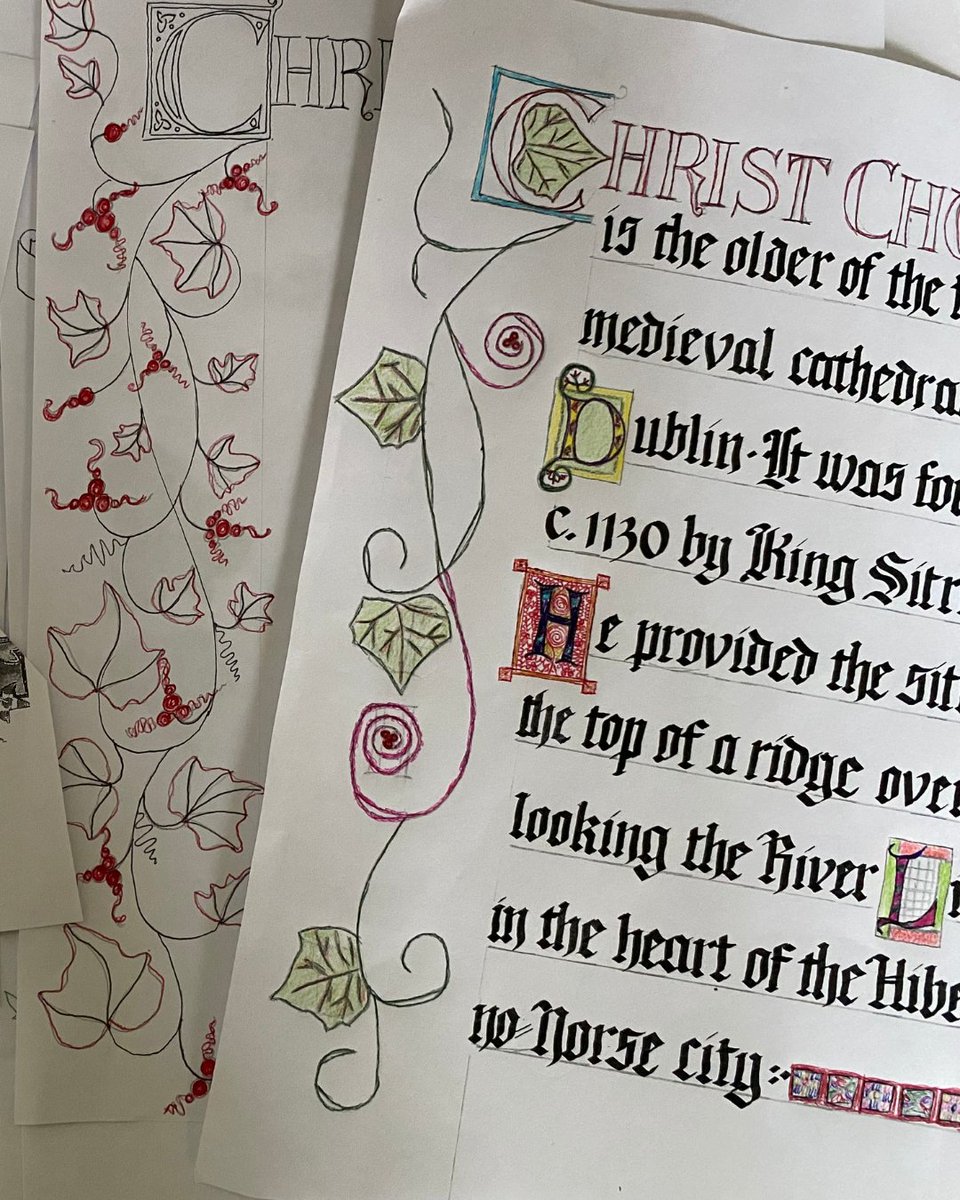 CHRI
CHRIST CHU
is the older of the
medieval cathedra
Dublin. It was fo
c. 1130 by King Sitr
He provided the sit
the top of a ridge over
looking the River L
in the heart of the Hibe
no=Norse city:~